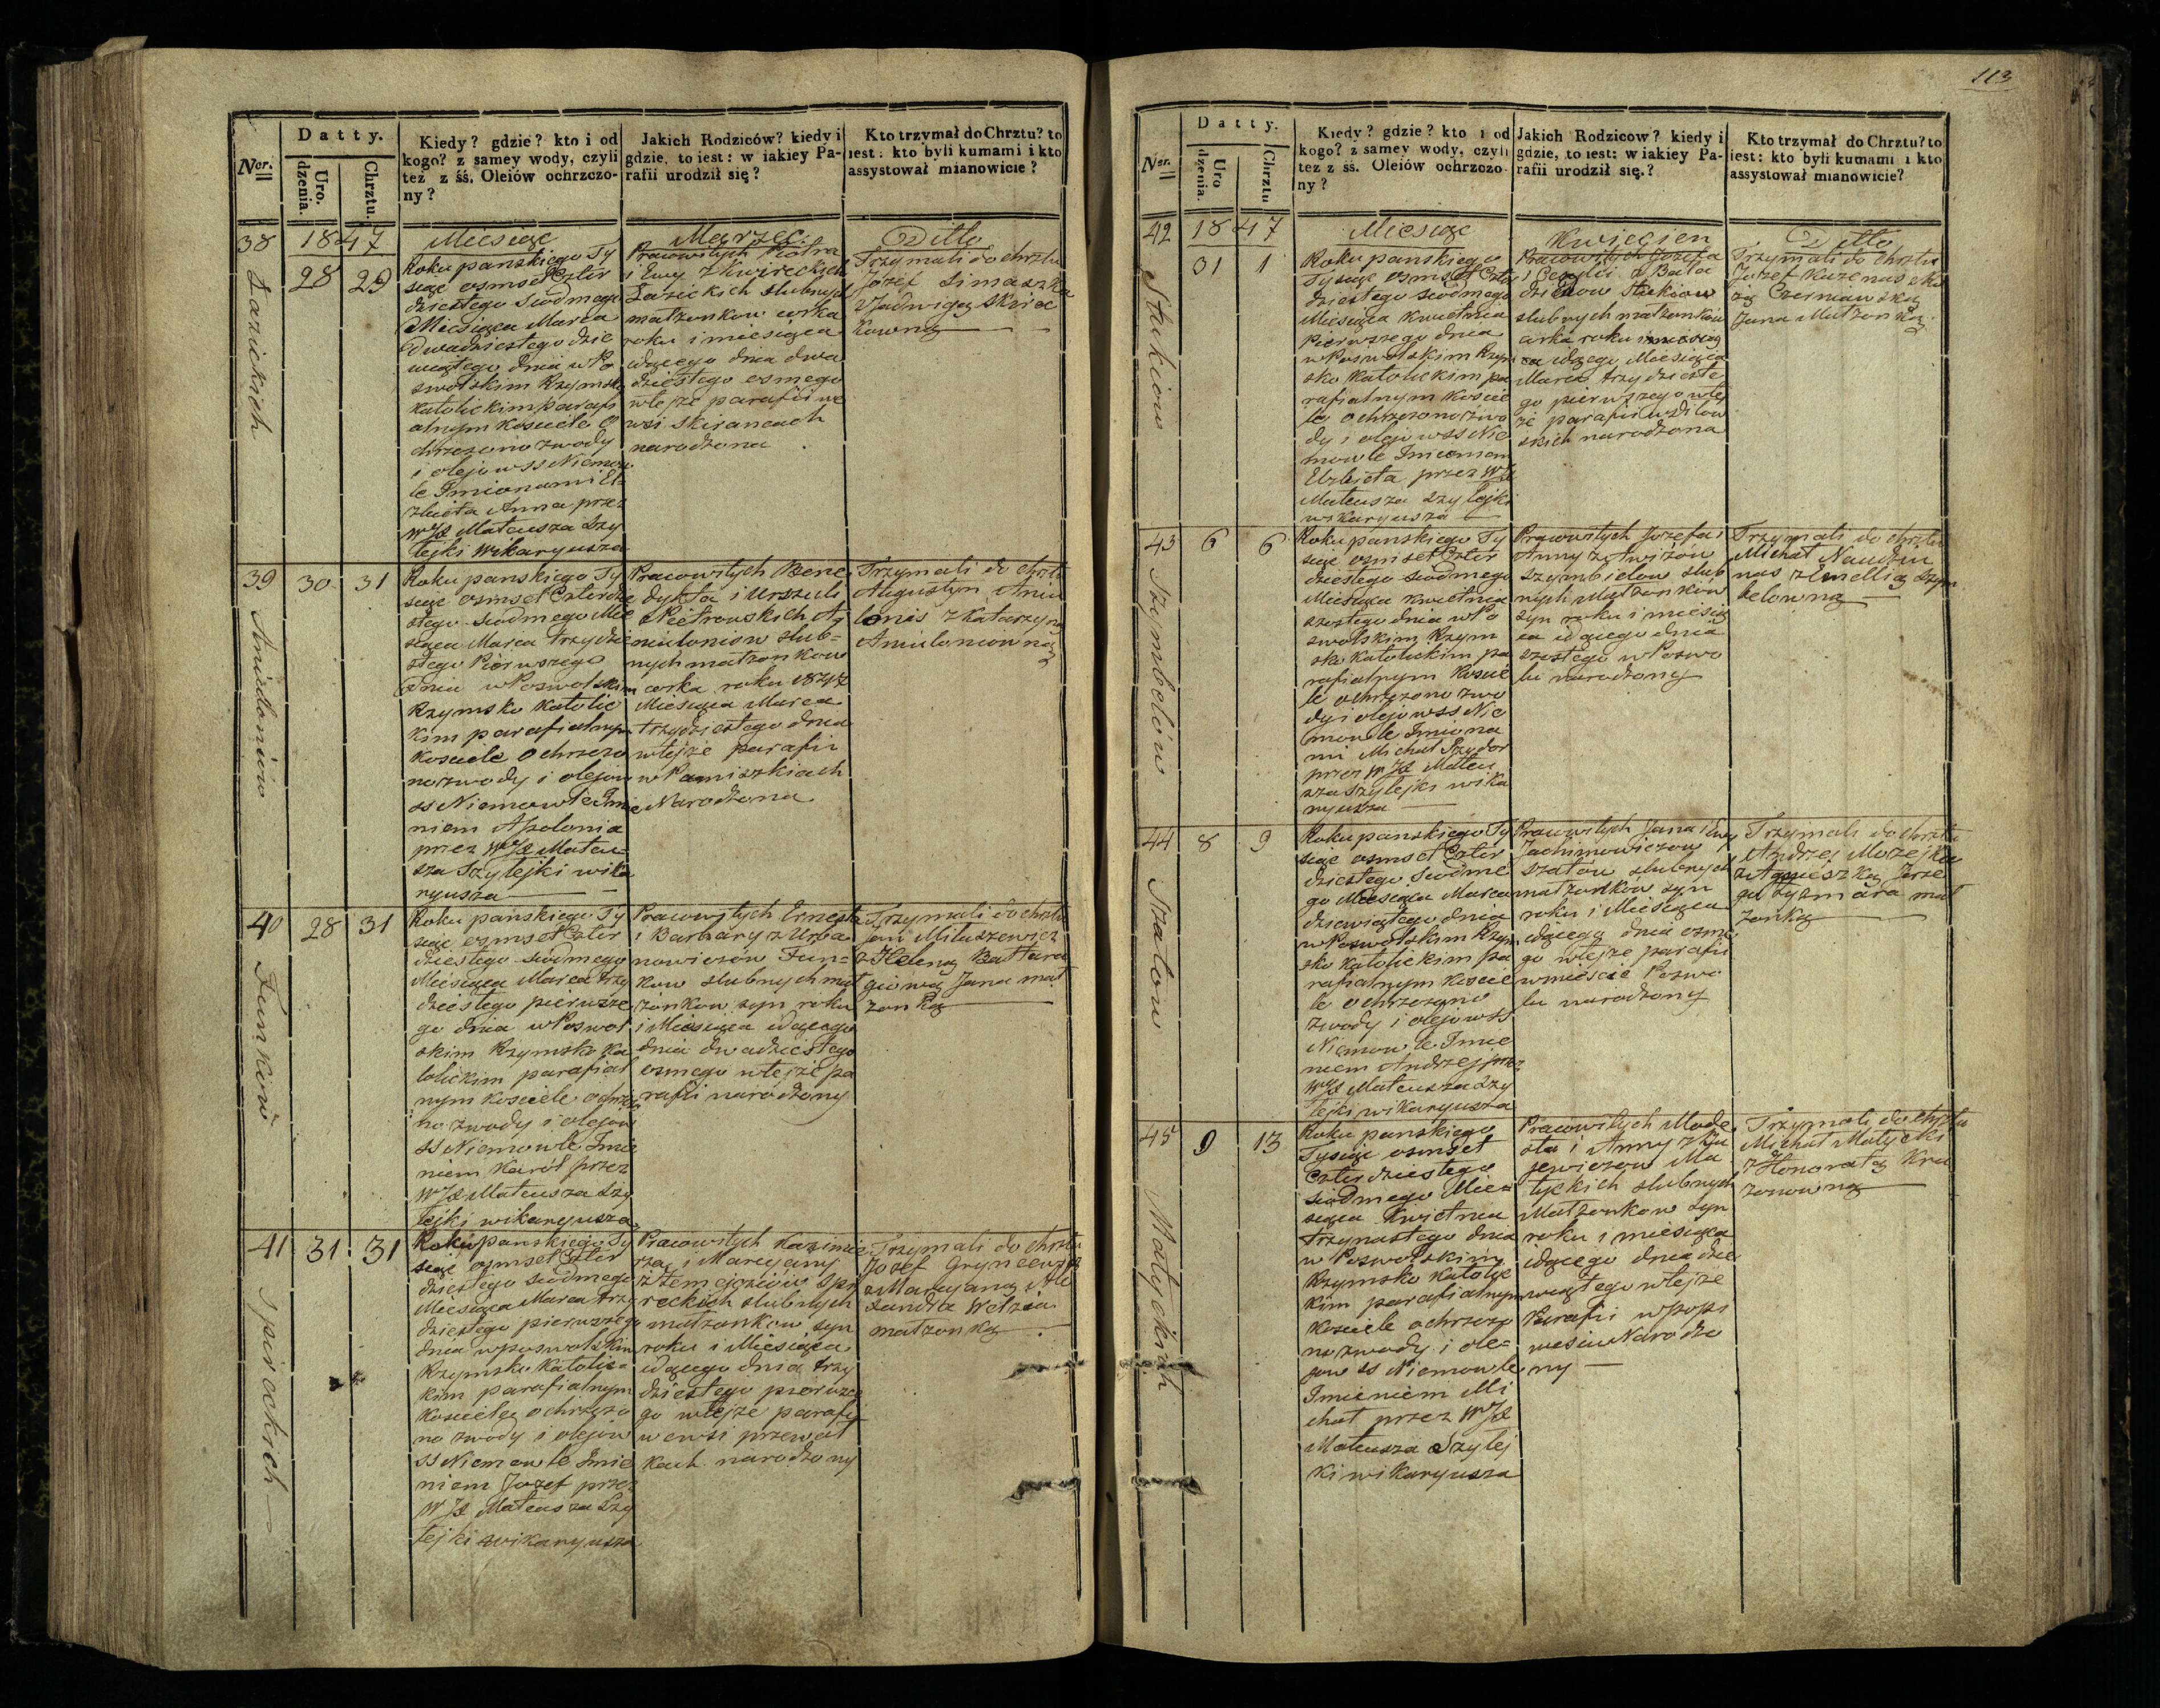 Ner.
Datty.
Uro.
dzenia.
Chrztu.
Kiedy? gdzie? kto i od
kogo? z samey wody, czyli
też z śś. Oleiów ochrzczo-
ny?
Jakich Rodziców? kiedy i
gdzie, to iest: w iakiey Pa-
rafii urodził się?
Kto trzymał do Chrztu? to
iest: kto byli kumami i kto
assystował mianowicie?
38
Łazickich
1847
28 29
Miesiąc
Roku panskiego Ty
siąc osmset Czter
dziestego siodmego
Miesiąca Marca
Dwadziestego dzie
wiątego dnia w Po
swolskim Rzymsko
katolickim parafi
alnym kosciele O
chrzczono z wody
i olejow SS Niemow
le Imionami El
zbieta Anna przez
WJX Mateusza Szy
lejki Wikaryusza
Marzec
Pracowitych Piotra
i Ewy z Kwireckich
Łazickich slubnych
małżonkow corka
roku i miesiąca
idącego dnia dwa
dziestego osmego
w tejże parafii we
wsi Skirancach
narodzona
Ditto
Trzymali do chrztu
Jozef Simaszka
z Jadwigą Skirac
kowną
39
Aniuloniow
30 31
Roku panskiego Ty
siąc osmset Czterdzie
stego siodmego Mie
siąca Marca trzydzie
stego Pierwszego
dnia w Poswolskim
Rzymsko Katolic
kim parafialnym
Kosciele Ochrzczo
no z wody i olejow
SS Niemowle Imie
niem Apolonia
przez WJX Mateu
sza Szylejki wika
ryusza
Pracowitych Bene
dykta i Urszuli
z Pietrowskich A
niuloniow slub=
nych małżonkow
corka roku 1847
Miesiąca Marca
trzydziestego dnia
w tejże parafii
w Pamiszkiach
Narodzona
Trzymali do chrztu
Augustyn Aniu
lonis z Katarzyną
Aniulonowną
40
Funkow
28 31
Roku panskiego Ty
siąc osmset Czter
dziestego siodmego
Miesiąca Marca trzy
dziestego pierwsze
go dnia w Poswol
skim Rzymsko Ka
tolickim parafial
nym kosciele ochrzczo
no z wody i olejow
SS Niemowle Imie
niem Karól przez
WJX Mateusza Szy
lejki wikaryusza
Pracowitych Ernesta
i Barbary z Urba
nowiczow Fun=
kow slubnych mał
żonkow syn roku
i Miesiąca idącego
dnia dwadziestego
osmego w tejże pa
rafii narodzony
Trzymali do chrztu
Jan Miluszewicz
z Heleną Battara
giową Jana mał
żonką
41
Spirockich
31 31
Roku panskiego Ty
siąc osmset Czter
dziestego siodmego
Miesiąca Marca trzy
dziestego pierwszego
dnia w poswolskim
Rzymsko Katolic=
kim parafialnym
Kosciele ochrzczo
no z wody i olejow
SS Niemowle Imie
niem Jozef przez
WJX Mateusza Szy
lejki wikaryusza
Pracowitych Kazimie
rza i Maryanny
Spi
reckich slubnych
małżonkow syn
roku i Miesiąca
idącego dnia trzy
dziestego pierwsze
go w tejże parafii
we wsi przewał
kach narodzony
Trzymali do chrztu
Jozef Gryncewicz
z Maryanną Ale
xandra Wełzia
małżonką
113
Ner.
Datty.
Uro
dzenia.
Chrztu
Kiedy? gdzie? kto i od
kogo? z samey wody, czyli
też z śś. Oleiów ochrzczo-
ny?
Jakich Rodziców? kiedy i
gdzie, to iest: w iakiey Pa-
rafii urodził się?
Kto trzymał do Chrztu? to
iest: kto byli kumami i kto
assystował mianowicie?
42
Stukiow
1847
31 1
Miesiąc
Roku panskiego
Tysiąc osmset Czter
dziestego siodmego
Miesiąca Kwietnia
Pierwszego dnia
w Poswolskim Rzym
sko Katolickim pa
rafialnym Koscie
le Ochrzczono z wo
dy i olejow SS Nie
mowle Imieniem
Elzbieta przez WJX
Mateusza Szylejki
wikaryusza
Kwiecien
Pracowitych Jozefa
i Cecylii z Bała
dziow Stukiow
slubnych małżonkow
corka roku i miesią
ca idącego Miesiąca
Marca trzydzieste
go pierwszego w tej
że parafii
narodzona
Ditto
Trzymali do chrztu
Jozef
Czerniawską
Jana Małżonką
43
Szymbelow
6 6
Roku panskiego Ty
siąc osmset Czter
dziestego siodmego
Miesiąca Kwietnia
szostego dnia w Po
swolskim Rzym
sko Katolickim pa
rafialnym Koscie
le ochrzczono z wo
dy i olejow SS Nie
mowle Imiona
mi Michał Izydor
przez WJX Mateu
sza Szylejki wika
ryusza
Pracowitych Jozefa i
Anny z Awiżow
Szymbelow slub
nych Małżonkow
syn roku i miesią
ca idącego dnia
szostego w Poswo
lu narodzony
Trzymali do chrztu
Michał Naudziu
nas z Emellią Szym
belowną
44
Szatow
8 9
Roku panskiego Ty
siąc osmset Czter
dziestego siodme
go Miesiąca Marca
dziewiątego dnia
w Poswolskim Rzym
sko Katolickim pa
rafialnym koscie
le ochrzczono
z wody i olejow SS
Niemowle Imie
niem Andrzej przez
WJX Mateusza Szy
lejki wikaryusza
Pracowitych Jana i Ewy
Jachimowiczow
Szatow slubnych
małżonkow syn
roku i Miesiąca
idącego dnia osme
go w tejże parafii
w miescie Poswo
lu narodzony
Trzymali do chrztu
Andrzej Możejko
z Agnieszką Jerze
go Syzmara mał
żonką
45
Matyckich
9 13
Roku panskiego
Tysiąc osmset
Czterdziestego
siodmego Mie=
siąca Kwietnia
trzynastego dnia
w Poswolskim
Rzymsko Katolic
kim parafialnym
kosciele ochrzczo
no z wody i ole=
jow SS Niemowle
Imieniem Mi
chał przez WJX
Mateusza Szylej
ki wikaryusza
Pracowitych Mode
sta i Anny z Gu
jewiczow Ma
tyckich slubnych
Małżonkow syn
roku i miesiąca
idącego dnia dzie
wiątego w tejże
Parafii w Popi
wesiu Narodzo
ny
Trzymali do chrztu
Michał Matycki
z Honoratą Kra
zonowną